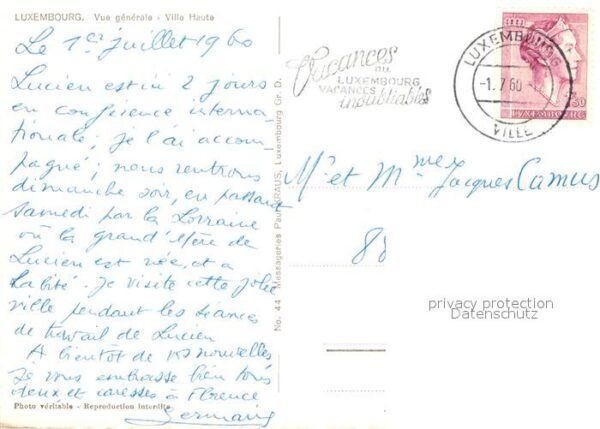 LUXEMBOURG. Vue générale - Ville Haute
Le 1er juillet 1960
Lucien est ici 2 jours
en conférence interna
tionale; je l'ai accom
pagné; nous rentrons
dimanche soir, en passant
samedi par la Lorraine
où la grand'mère de
Lucien est née, et a
habité. Je visite cette jolie
ville pendant les séances
de travail de Lucien
A bientôt de vos nouvelles
Je vous embrasse bien tous
deux et caresses à Florence
Germaine
Photo véritable - Reproduction interdite
No. 44 Messageries Paul KRAUS, Luxembourg Gr. D.
Vacances
AU
LUXEMBOURG
VACANCES
inoubliables
LUXEMBOURG
-1.7.60
VILLE
LUXEMBOURG
Mr et Mme Jacques Camus
privacy protection
Datenschutz